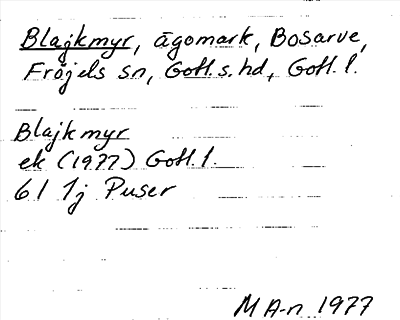 Blajkmyr, ägomark, Bosarve,
Fröjels sn, Gotl. s. hd, Gotl. l.
Blajkmyr
ek (1977) Gotl. l.
6 I 1j Puser
M A-n 1977